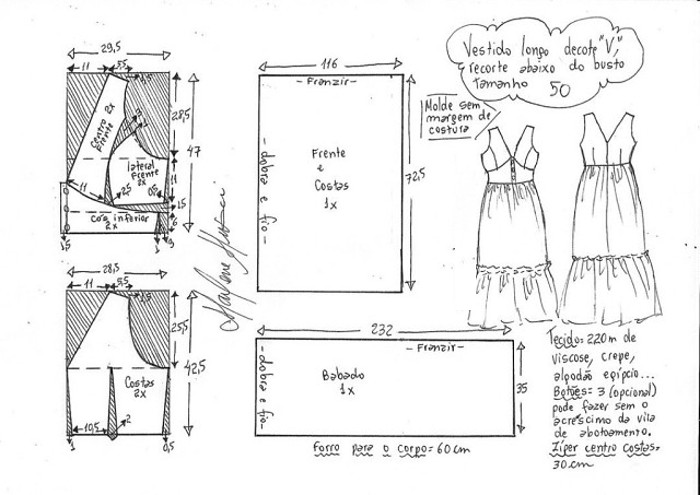 Vestido longo decote "V",
recorte abaixo do busto
tamanho 50
Molde sem
margem de
costura
29,5
11
5,5
1,5
28,5
47
Centro
Frente
2x
lateral
frente
2x
11
2,5
0,5
11
1,5
6
Cós inferior
2x
1,5
1
3
28,5
11
5,5
1,5
25,5
42,5
Costas
2x
10,5
2
1
0,5
116
- Franzir -
- dobra e fio -
Frente
e
Costas
1x
72,5
232
- Franzir -
- dobra e fio -
Babado
1x
35
forro para o corpo = 60cm
Tecido = 2,20 m de
viscose, crepe,
algodão egípcio...
Botões = 3 (opcional)
pode fazer sem o
acréscimo da vila
de abotoamento.
Zíper centro costas =
30cm